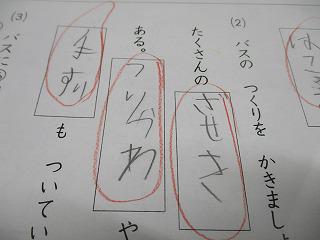 (2) バスの つくりを かきましょ
たくさんの ざせき
ある。 つりかわ や
手すり も ついてい
(3) バスに